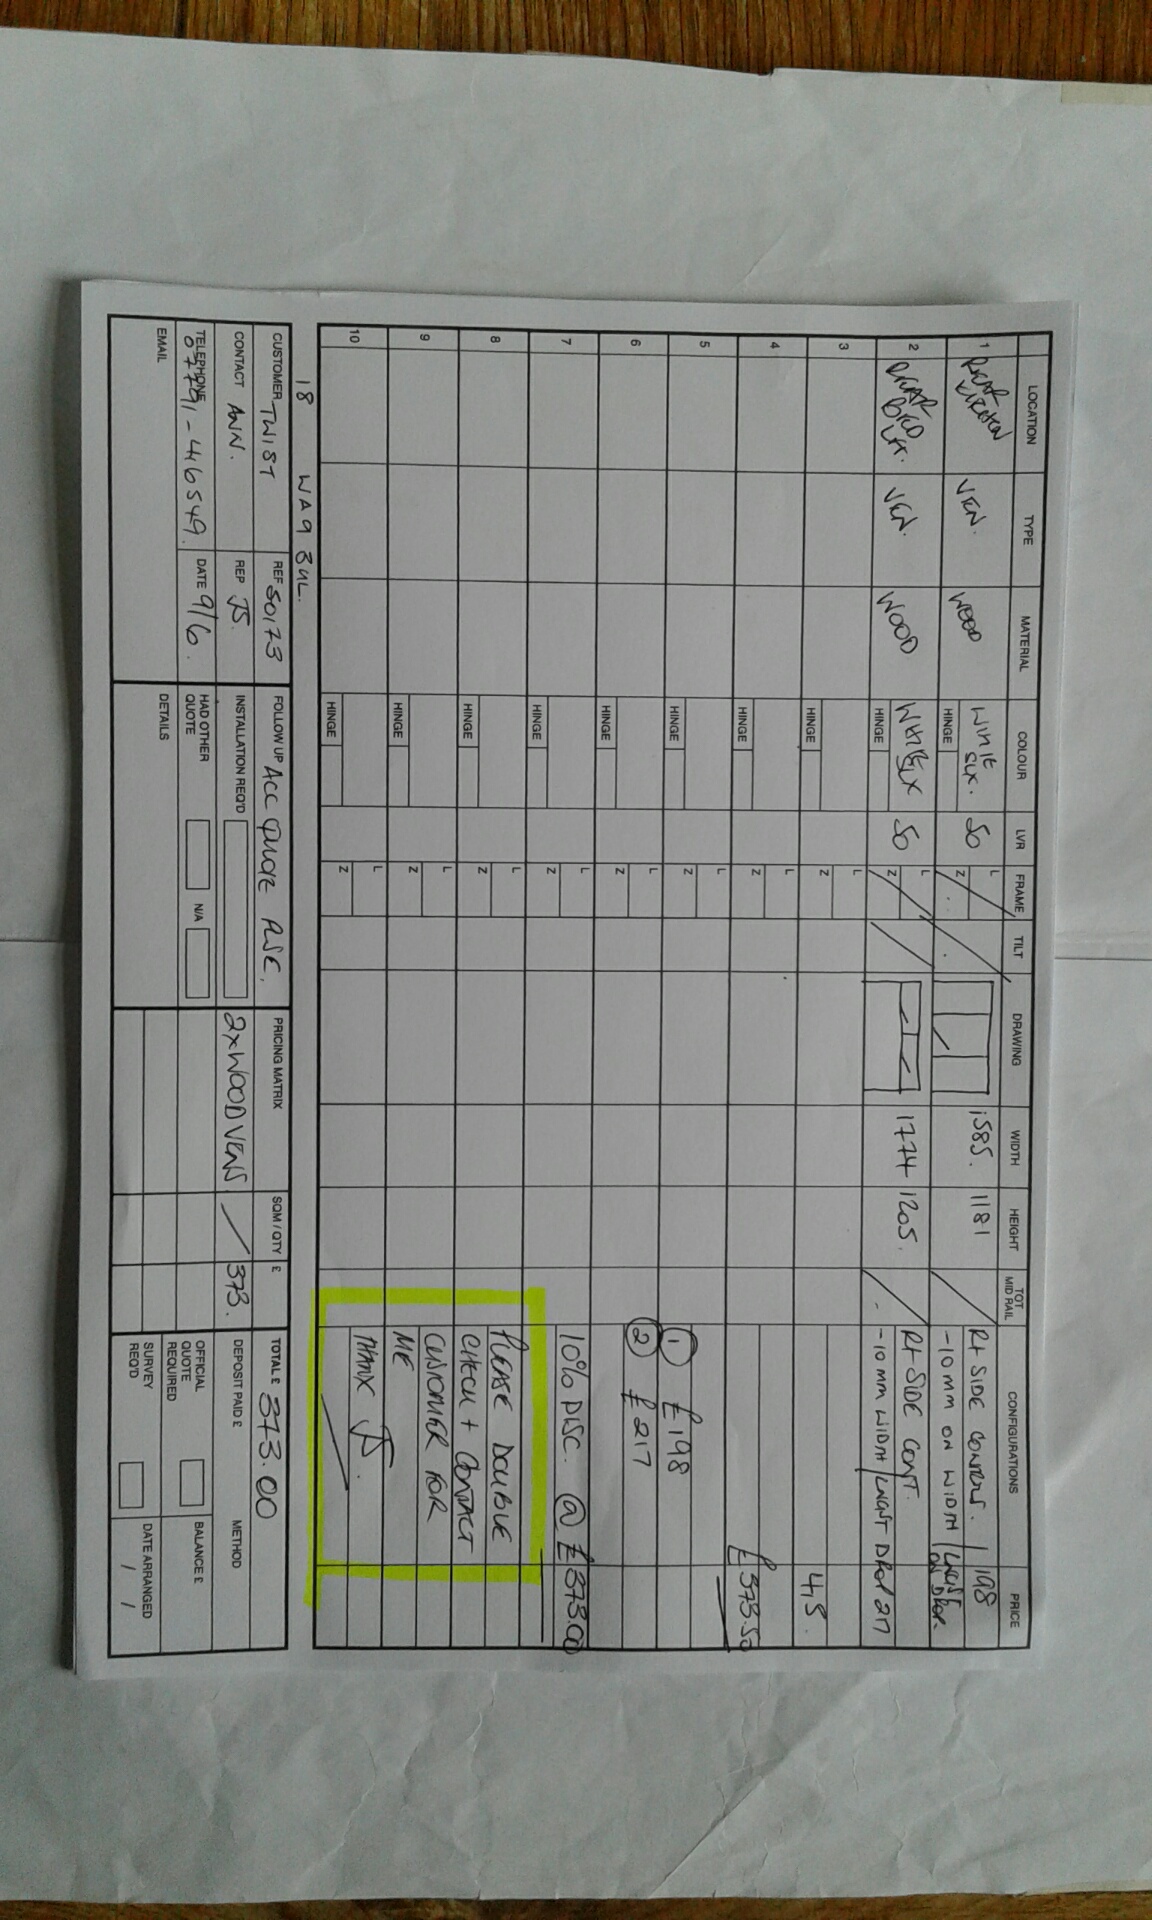 LOCATION TYPE MATERIAL COLOUR LVR FRAME TILT DRAWING WIDTH HEIGHT TOT MID RAIL CONFIGURATIONS PRICE
1 REAR KITCHEN VEN. WOOD WHITE SLX. 50 L Z 1585. 1181 Rt SIDE CONTROLS. 198
HINGE -10 MM ON WIDTH
2 REAR BED VEN. WOOD WHITE SLX 50 L Z 1774 1205. Rt SIDE CONT.
HINGE -10 MM WIDTH 217
3 HINGE L Z 415.
4 HINGE L Z £373.50
5 HINGE L Z ① £198
6 HINGE L Z ② £217
7 HINGE L Z 10% DISC. @ £373.00
8 HINGE L Z PLEASE DOUBLE
CHECK + CONTACT
9 HINGE L Z CUSTOMER FOR
ME
10 HINGE L Z THANX JS.
18 WA9 3UL.
CUSTOMER TWIST REF 50173 FOLLOW UP ACC QUOTE PLSE. PRICING MATRIX SQM / QTY £ TOTAL £ 373.00
CONTACT ANN. REP JS. INSTALLATION REQ'D 2x WOOD VENS 373. DEPOSIT PAID £ METHOD
TELEPHONE 07791-416549. DATE 9/6. HAD OTHER QUOTE N/A OFFICIAL QUOTE REQUIRED BALANCE £
EMAIL DETAILS SURVEY REQ'D DATE ARRANGED / /